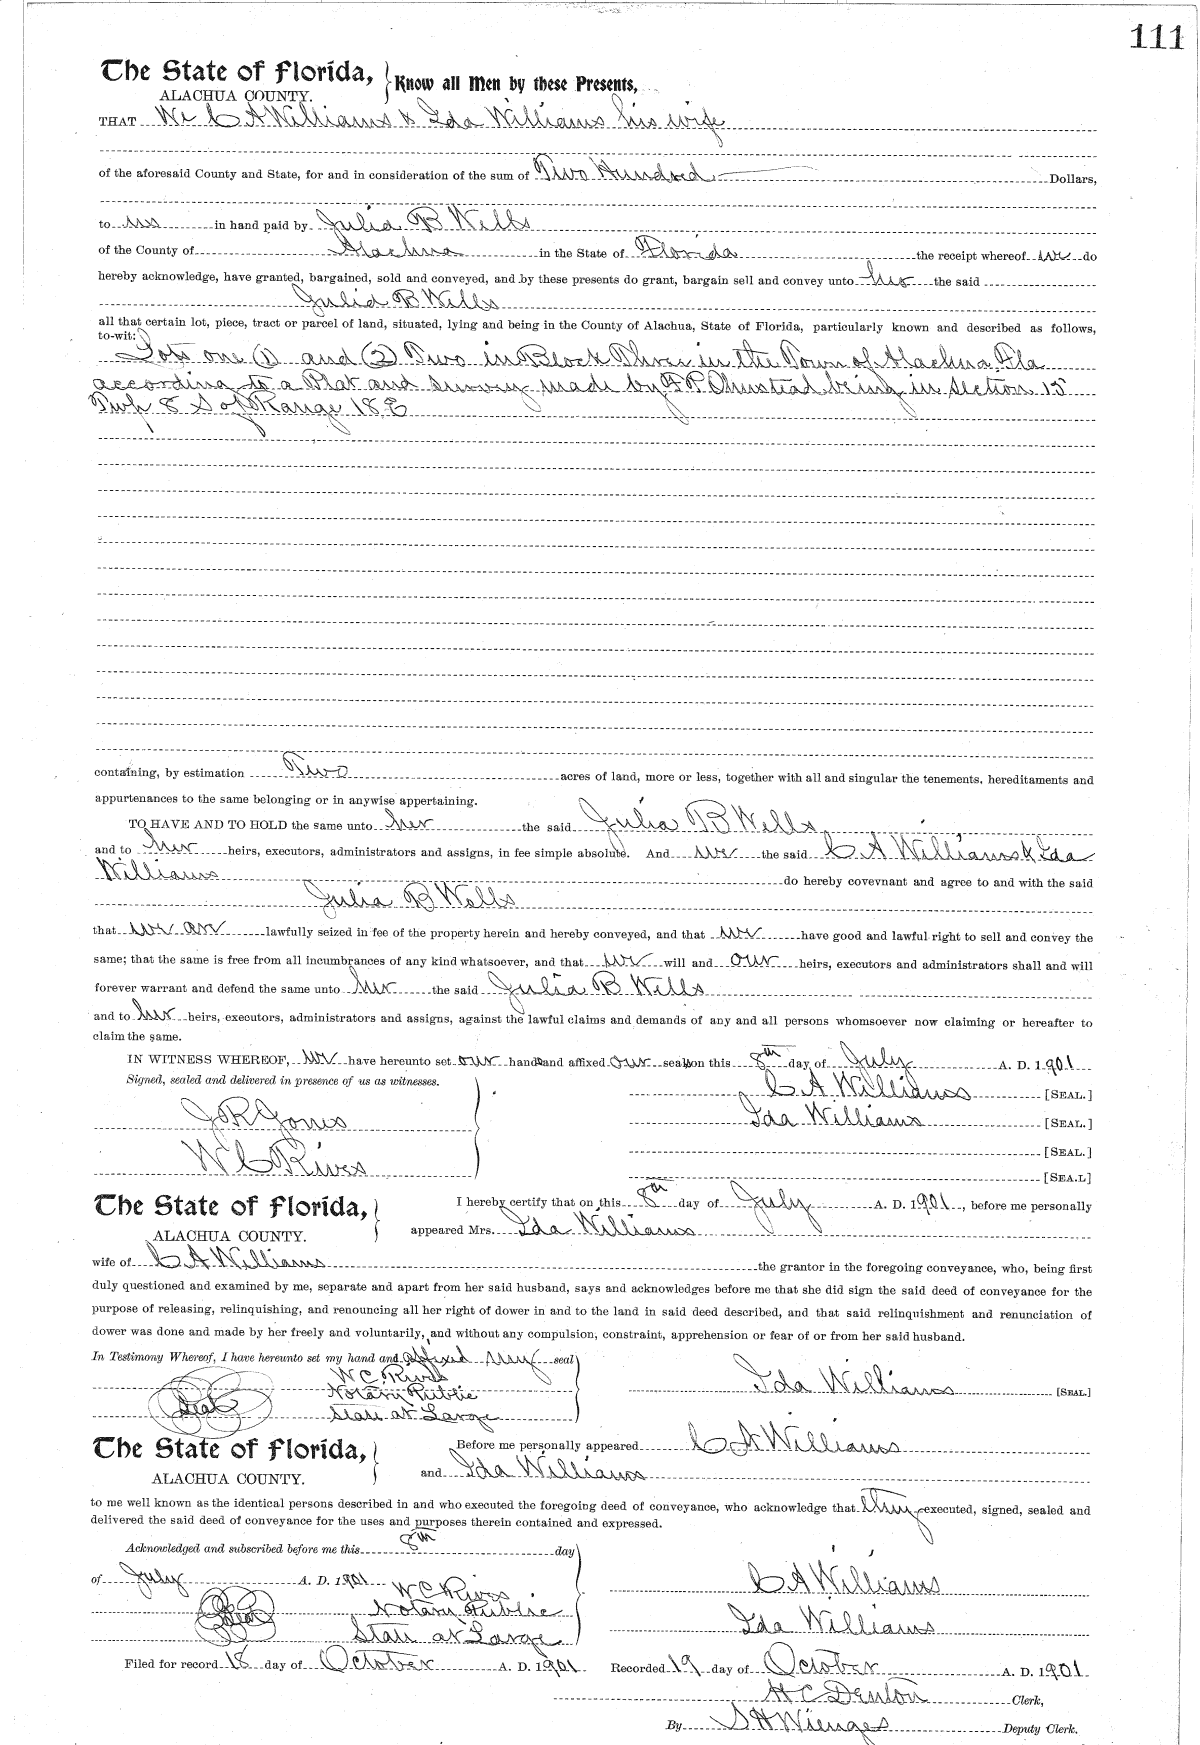 111
The State of Florida, Know all Men by these Presents,
ALACHUA COUNTY.
THAT We C A Williams & Ida Williams his wife
of the aforesaid County and State, for and in consideration of the sum of Two Hundred Dollars,
to us in hand paid by Julia B Wells
of the County of Alachua in the State of Florida the receipt whereof we do
hereby acknowledge, have granted, bargained, sold and conveyed, and by these presents do grant, bargain sell and convey unto her the said
Julia B Wells
all that certain lot, piece, tract or parcel of land, situated, lying and being in the County of Alachua, State of Florida, particularly known and described as follows,
to-wit:
Lots one (1) and (2) Two in Block Three in the Town of Alachua Fla
according to a Plat and survey made by F P Olmstead being in section 15
Twp 8 S of Range 18 E
containing, by estimation Two acres of land, more or less, together with all and singular the tenements, hereditaments and
appurtenances to the same belonging or in anywise appertaining.
TO HAVE AND TO HOLD the same unto her the said Julia B Wells
and to her heirs, executors, administrators and assigns, in fee simple absolute. And we the said C A Williams & Ida
Williams do hereby covevnant and agree to and with the said
Julia B Wells
that we are lawfully seized in fee of the property herein and hereby conveyed, and that we have good and lawful right to sell and convey the
same; that the same is free from all incumbrances of any kind whatsoever, and that we will and our heirs, executors and administrators shall and will
forever warrant and defend the same unto her the said Julia B Wells
and to her heirs, executors, administrators and assigns, against the lawful claims and demands of any and all persons whomsoever now claiming or hereafter to
claim the same.
IN WITNESS WHEREOF, we have hereunto set our hands and affixed our seals on this 8th day of July A. D. 1901
Signed, sealed and delivered in presence of us as witnesses. C A Williams [SEAL.]
J R Jones Ida Williams [SEAL.]
W C Rives [SEAL.]
[SEA.L]
The State of Florida, I hereby certify that on this 8th day of July A. D. 1901, before me personally
ALACHUA COUNTY. appeared Mrs. Ida Williams
wife of C A Williams the grantor in the foregoing conveyance, who, being first
duly questioned and examined by me, separate and apart from her said husband, says and acknowledges before me that she did sign the said deed of conveyance for the
purpose of releasing, relinquishing, and renouncing all her right of dower in and to the land in said deed described, and that said relinquishment and renunciation of
dower was done and made by her freely and voluntarily, and without any compulsion, constraint, apprehension or fear of or from her said husband.
In Testimony Whereof, I have hereunto set my hand and affixed my seal
W C Rives Ida Williams [SEAL.]
Notary Public
Seal State at Large
The State of Florida, Before me personally appeared C A Williams
ALACHUA COUNTY. and Ida Williams
to me well known as the identical persons described in and who executed the foregoing deed of conveyance, who acknowledge that they executed, signed, sealed and
delivered the said deed of conveyance for the uses and purposes therein contained and expressed.
Acknowledged and subscribed before me this 8th day
of July A. D. 1901 W C Rives C A Williams
Seal Notary Public Ida Williams
State at Large
Filed for record 18 day of October A. D. 1901 Recorded 19 day of October A. D. 1901
H C Denton Clerk,
By S H Wienges Deputy Clerk.